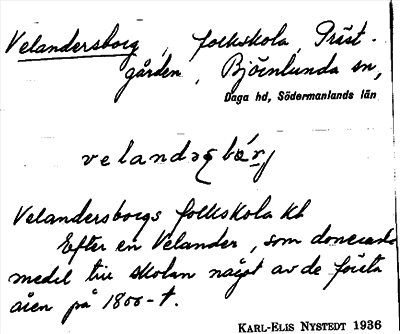 Velandersborg, folkskola, Präst-
gården, Björnlunda sn,
Daga hd, Södermanlands län
Velandersborgs folkskola kl
Efter en Velander, som donerade
medel till skolan något av de första
åren på 1800-t.
KARL-ELIS NYSTEDT 1936